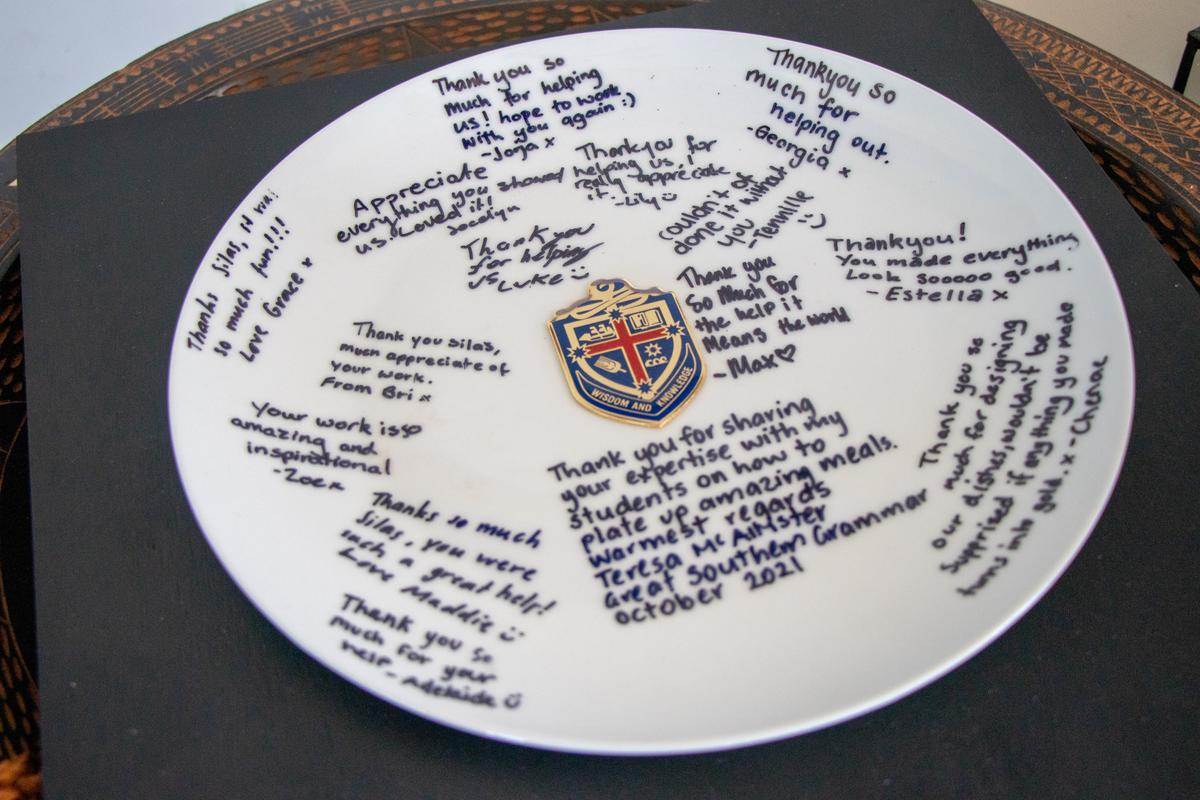 Thank you so
much for helping
us! hope to work
with you again :)
- Jorja x
Thankyou so
much for
helping out.
- Georgia x
Appreciate
everything you showed
us. Loved it!
Jocelyn
Thankyou for
helping us!
really appreciate
it.
- Lily
couldn't of
done it without
you
- Tennille
Thank you
for helping
us Luke
Thanks Silas, it was
so much fun!!!
Love Grace x
Thankyou!
You made everything
Look sooooo good.
- Estella x
Thank you
So Much for
the help it
Means the world
- Max
WISDOM AND KNOWLEDGE
Thank you silas,
much appreciate of
your work.
From Bri x
Your work is so
amazing and
inspirational
- Zoe x
Thanks so much
Silas, you were
such a great help!
Love Maddie
Thank you so
much for your
help - Adelaide
Thank you for sharing
your expertise with my
students on how to
plate up amazing meals.
Warmest regards
Teresa McAlister
Great Southern Grammar
October 2021
Thank you so
much for designing
our dishes, wouldn't be
supprized if anything you made
turns into gold. x - Chenae